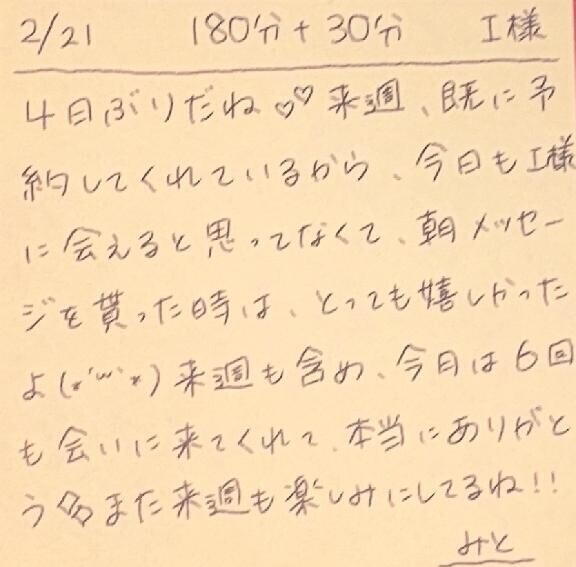 2/21 180分+30分 I様
4日ぶりだね♡♡来週、既に予
約してくれているから、今日もI様
に会えると思ってなくて、朝メッセー
ジを貰った時は、とっても嬉しかった
よ(*´ω`*)来週も含め、今日は6回
も会いに来てくれて、本当にありがと
うまた来週も楽しみにしてるね!!
みと